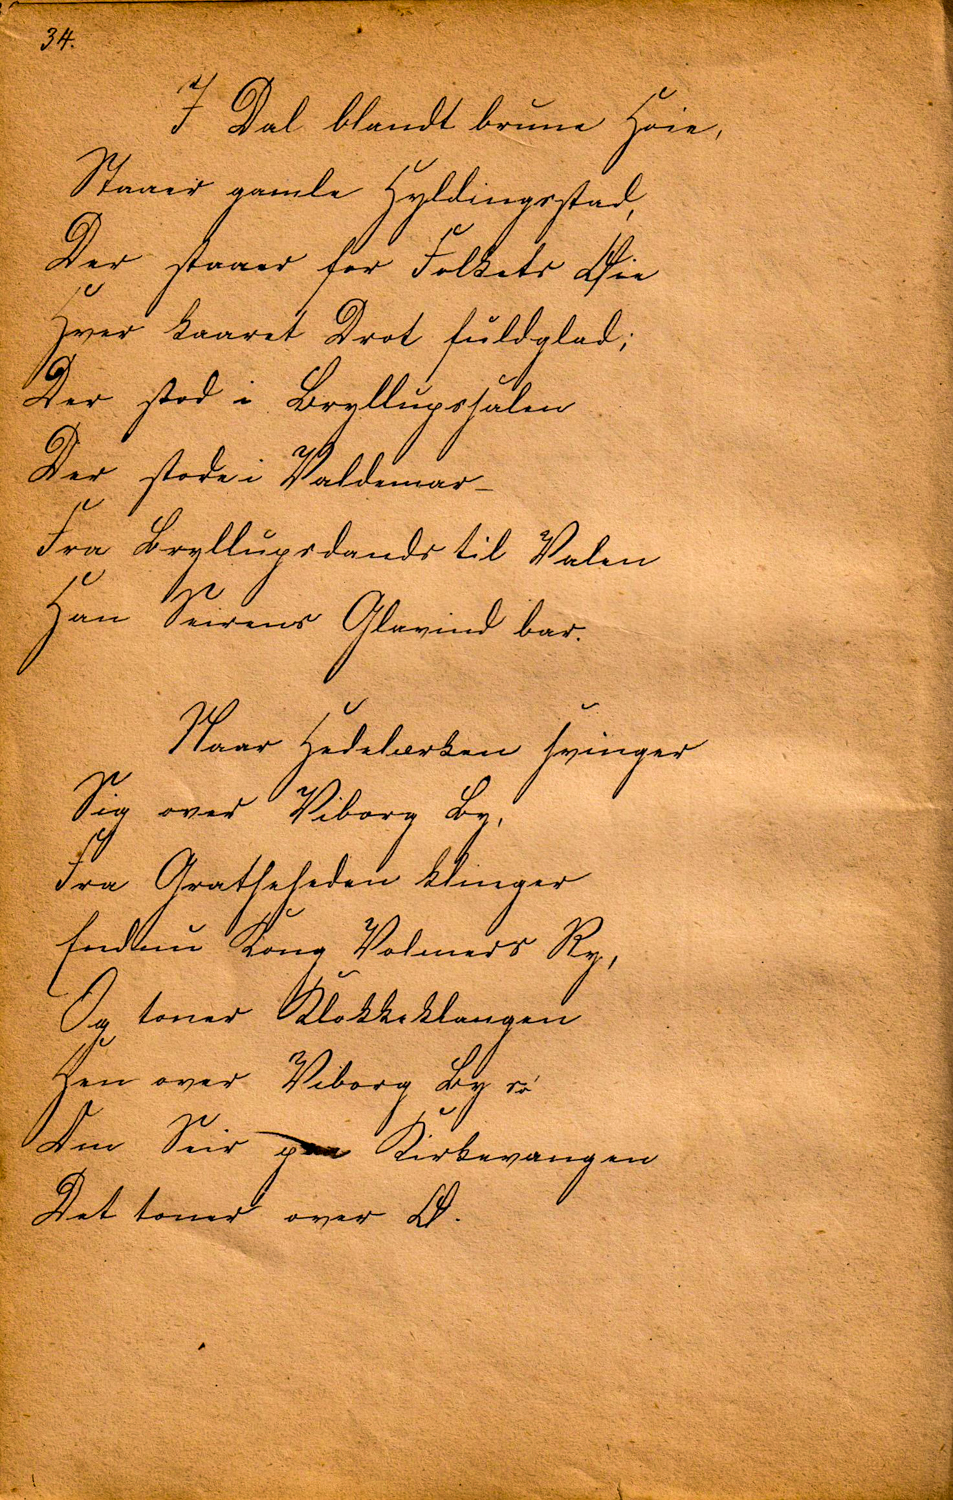 34.
I Dal blandt brune Høie,
Staaer gamle Hyldingsstad,
Der staaer for Folkets Øie
Hver kaaret Drot fuldglad;
Der stod i Bryllupssalen
Der stode i Valdemar—
Fra Bryllupsdands til Valen
Han Seirens Glavind bar.
Naar Hedelærken svinger
Sig over Viborg By,
Fra Gratheheden klinger
Endnu Kong Volmers Ry,
Og toner Klokkeklangen
Hen over Viborg By
Om Seir paa Kirkevangen
Det toner over Ø.